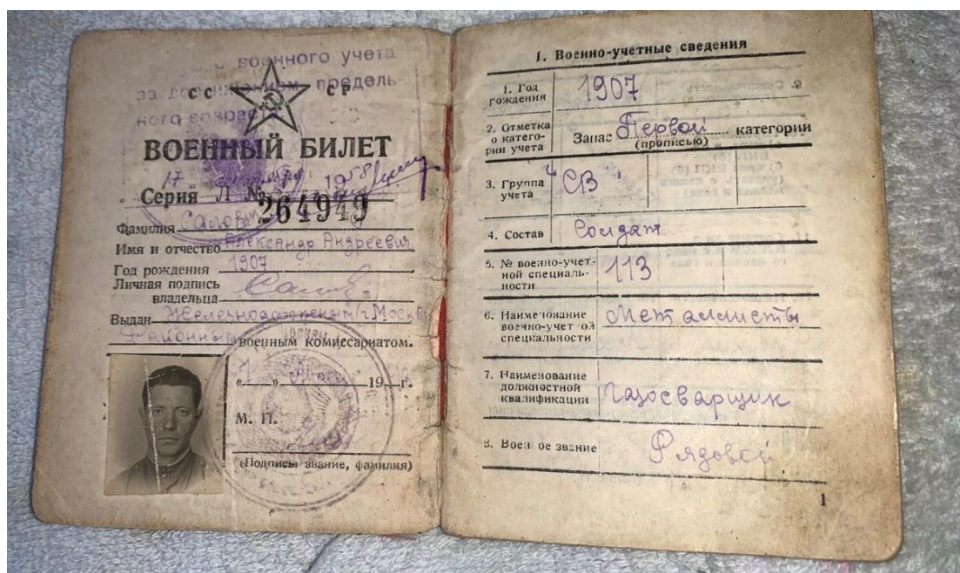 военного учета
за достижением предель-
ного возраста
СС СР
ВОЕННЫЙ БИЛЕТ
17 1958
Серия Л № 264949
Фамилия
Имя и отчество Александр Андреевич
Год рождения 1907
Личная подпись
владельца
Выдан Железнодорожным г. Москвы
Районным военным комиссариатом.
19
М. П.
(Подпись звание, фамилия)
1. Военно-учетные сведения
1. Год
рождения
1907
2. Отметка
о катего-
рии учета
Запас Первой категории
(прописью)
3. Группа
учета
"СВ"
4. Состав Солдат
5. № военно-учет-
ной специаль-
ности
113
6. Наименование
военно-учет ой
специальности
Металлисты
7. Наименование
должностной
квалификации
Газосварщик
8. Воен ое звание Рядовой
1